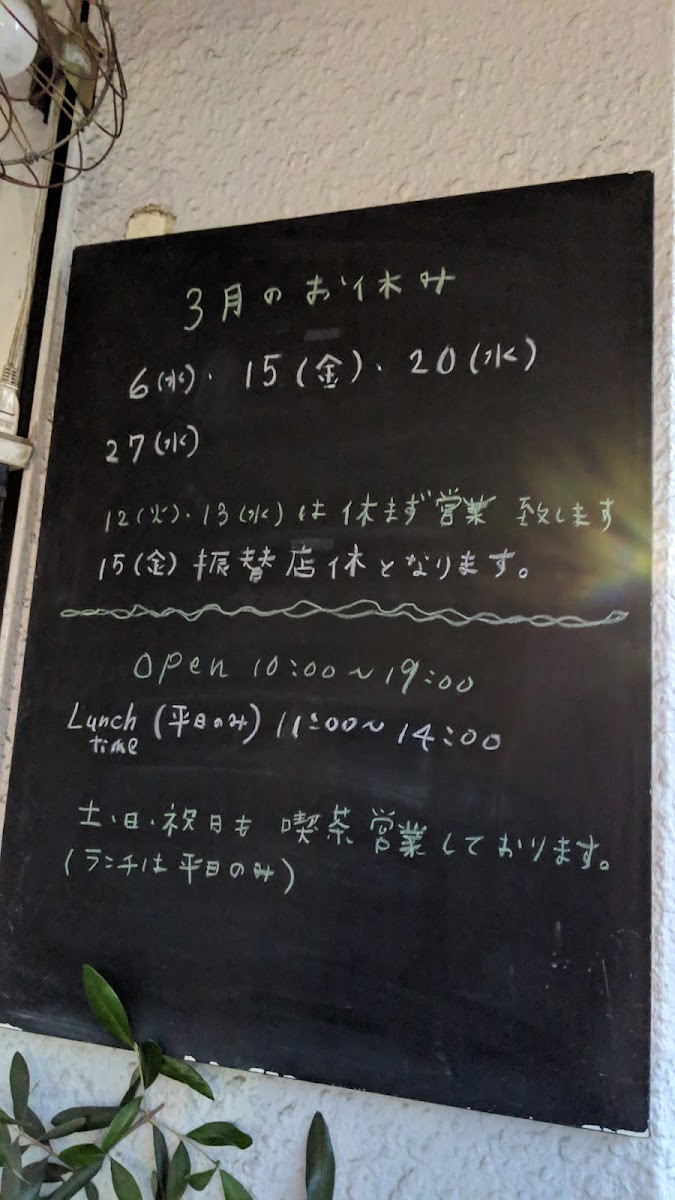 3月のお休み
6(水)・15(金)・20(水)
27(水)
12(火)・13(水)は休まず営業致します
15(金)振替店休となります。
open 10:00~19:00
Lunch time (平日のみ) 11:00~14:00
土・日・祝日も喫茶営業しております。
(ランチは平日のみ)